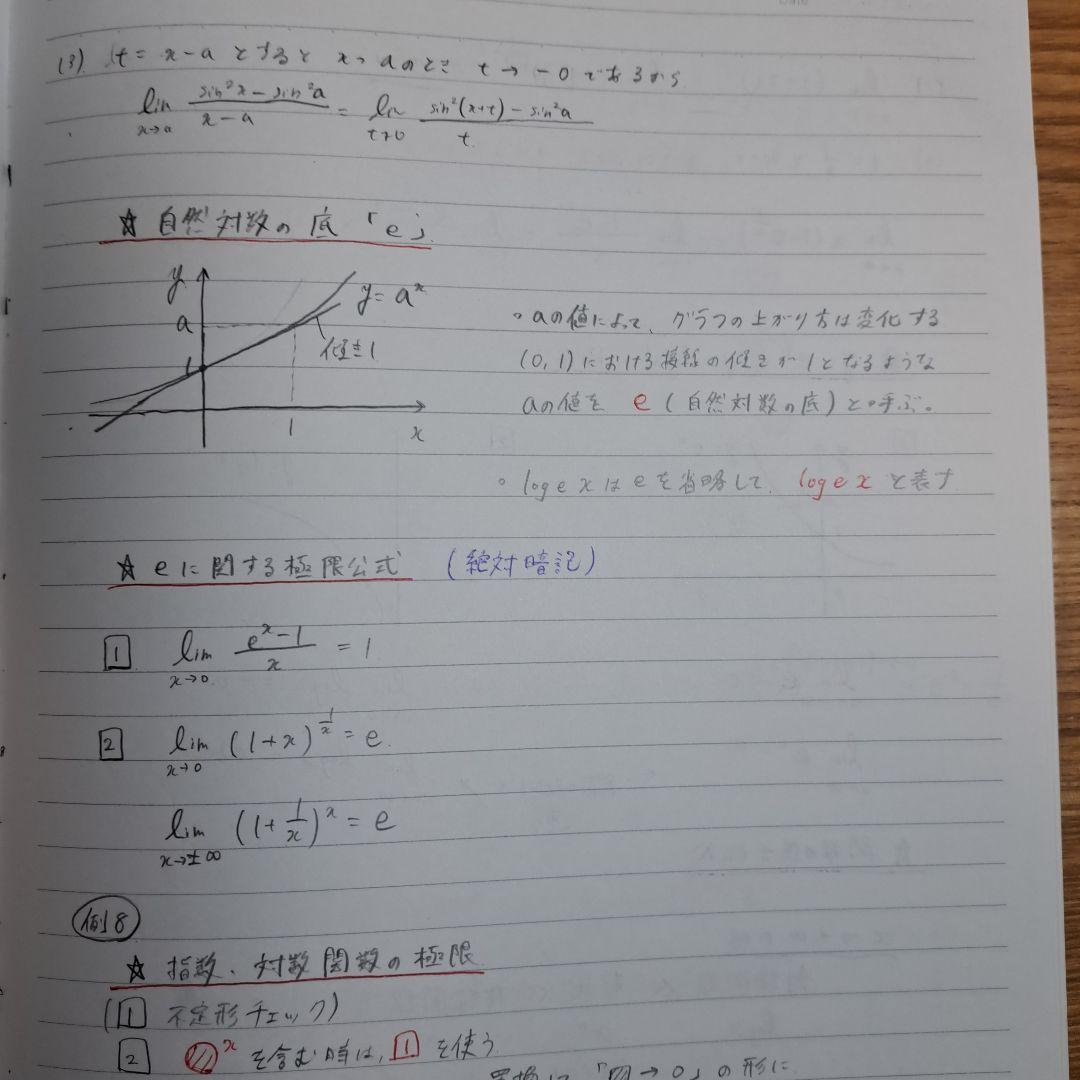 (3) t = x-a とすると x→aのとき t → -0 であるから
lim x→a (sin²x - sin²a)/(x-a) = lim t→0 (sin²(x+t) - sin²a)/t
☆ 自然対数の底「e」
y
y=a^x
a
傾き1
1
1
x
◦ aの値によって、グラフの上がり方は変化する
(0,1)における接線の傾きが1となるような
aの値を e (自然対数の底)と呼ぶ。
◦ log e x は e を省略して、 log e x と表す
☆ eに関する極限公式 (絶対暗記)
1 lim x→0 (e^x - 1)/x = 1
2 lim x→0 (1+x)^(1/x) = e
lim x→±∞ (1+1/x)^x = e
例8
☆ 指数、対数関数の極限
(1 不定形チェック)
2 ^x を含む時は, 1 を使う
→0」の形に